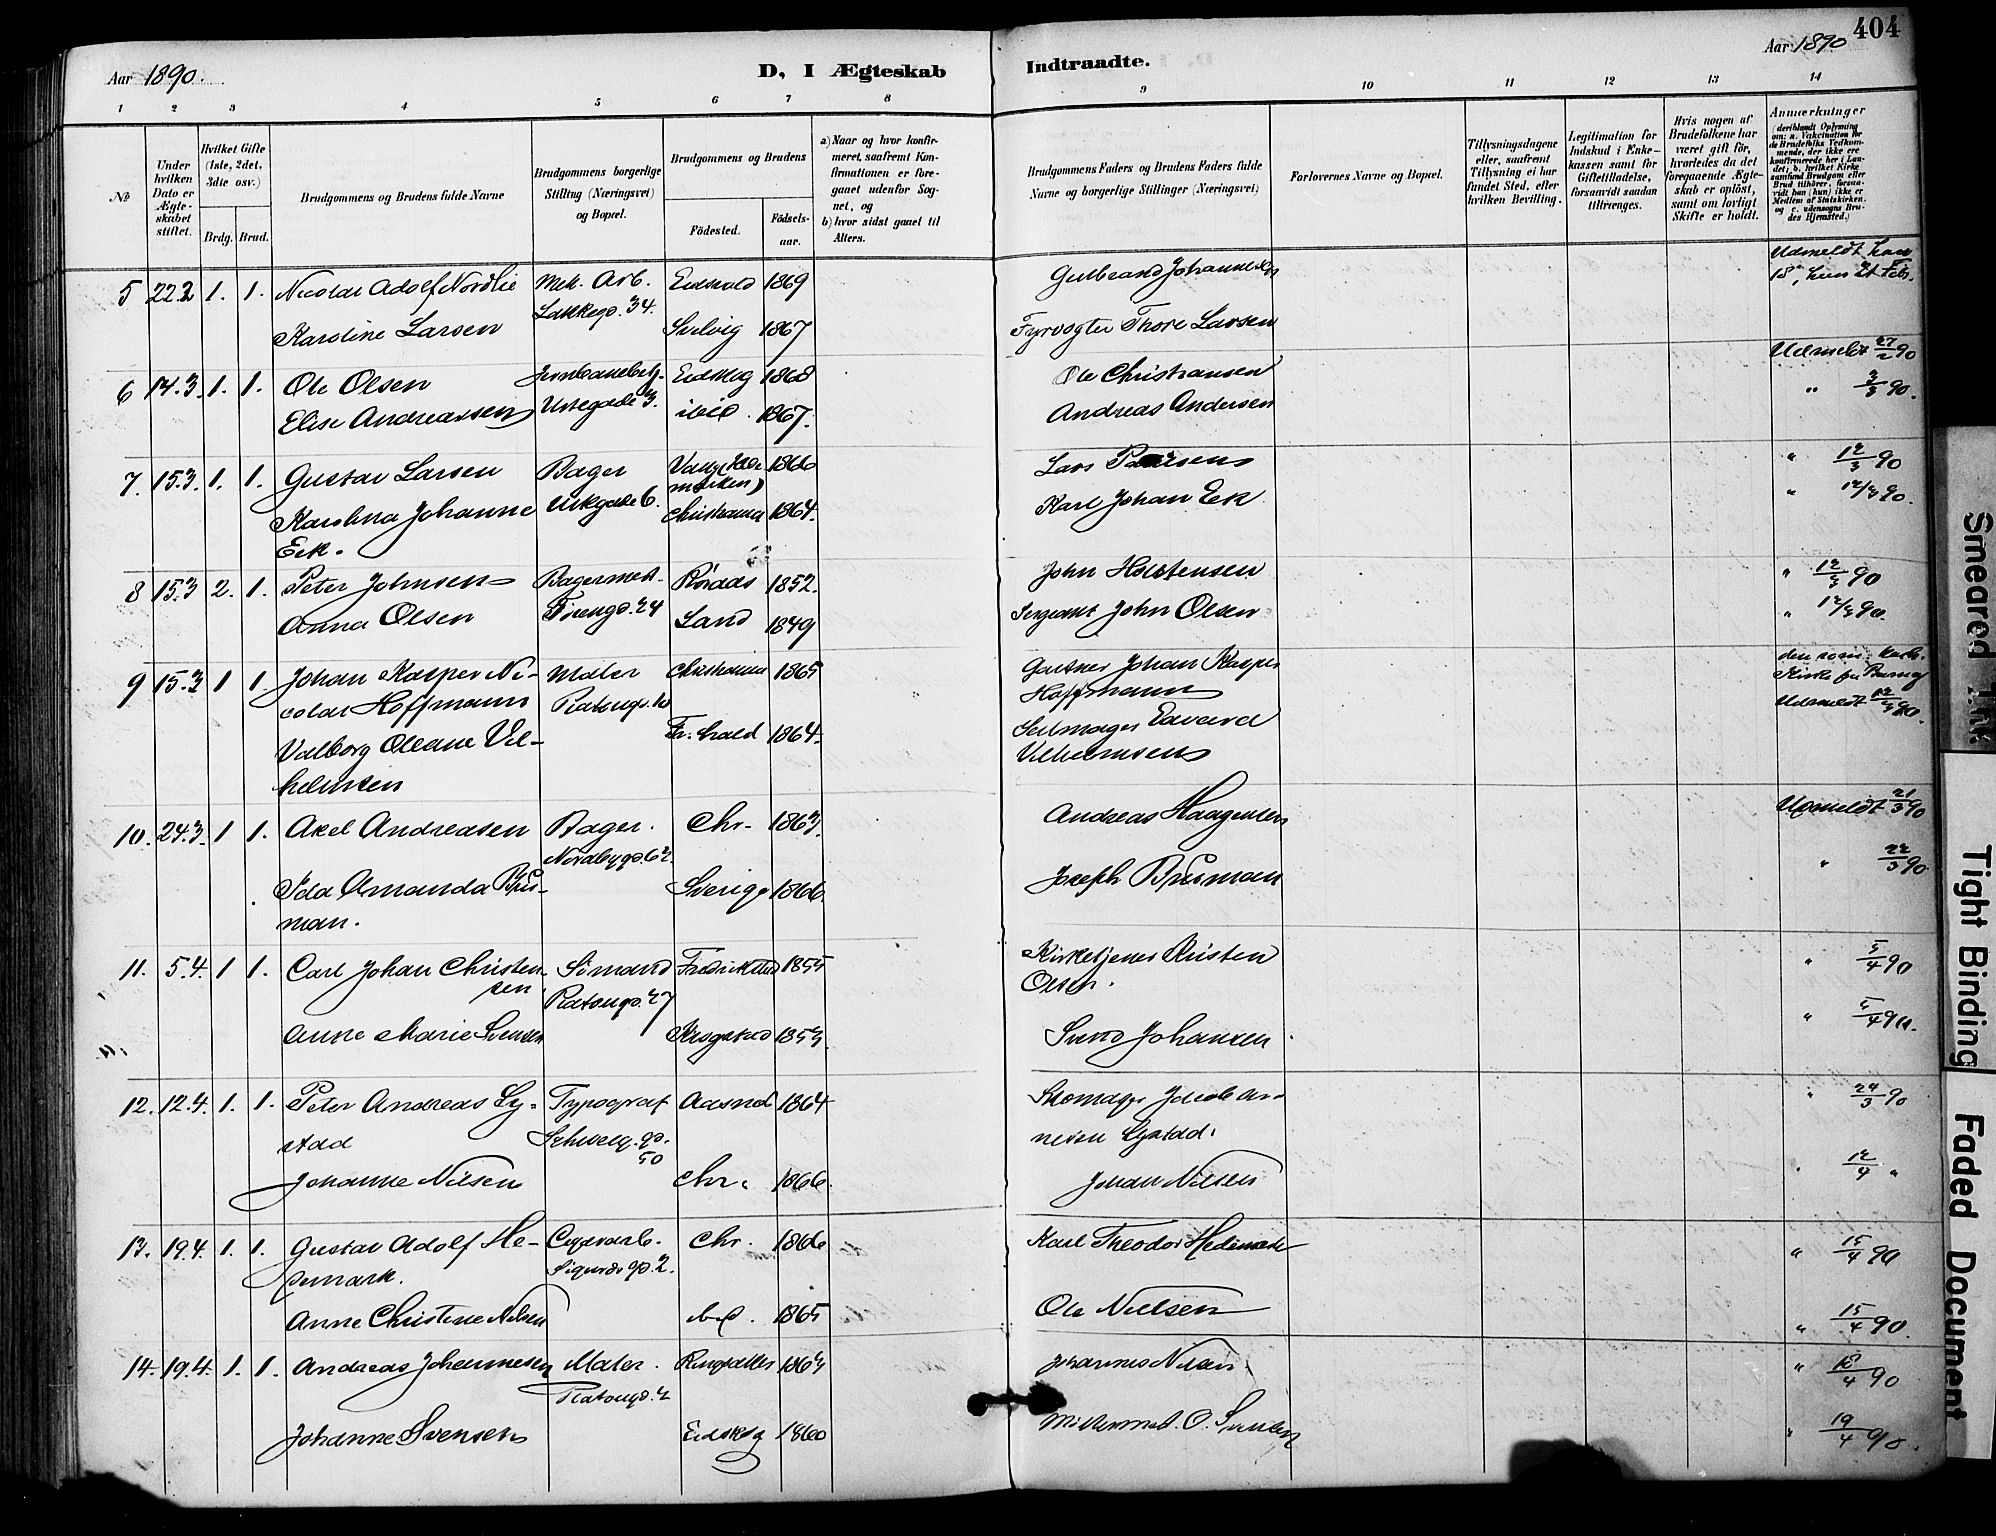 404
Aar 1890.
D, I Ægteskab
Indtraadte.
Aar 1890
1 2 3 4 5 6 7 8
9 10 11 12 13 14
No
Under hvilken Dato er Ægteskabet stiftet.
Hvilket Gifte (1ste, 2det, 3dte osv.)
Brdg. Brud.
Brudgommens og Brudens fulde Navne
Brudgommens borgerlige Stilling (Næringsvei) og Bopæl.
Brudgommens og Brudens
Fødested.
Fødselsaar.
a) Naar og hvor konfirmeret, saafremt Konfirmationen er foregaaet udenfor Sognet, og
b) hvor sidst gaaet til Alters.
Brudgommens Faders og Brudens Faders fulde Navne og borgerlige Stillinger (Næringsvei)
Forlovernes Navne og Bopæl.
Tillysningsdagene eller, saafremt Tillysning ei har fundet Sted, efter hvilken Bevilling.
Legitimation for Indskud i Enkekassen samt for Giftetilladelse, forsaavidt saadan tiltrænges.
Hvis nogen af Brudefolkene har været gift før, hvorledes da det foregaaende Ægteskab er opløst, samt om lovligt Skifte er holdt.
Anmærkninger
(deriblandt Oplysning om: a. Vakcination for de Brudefolks Vedkommende, der ikke ere konfirmerede her i Landet; b. hvilket Kirkesamfund Brudgom eller Brud tilhører, forsaavidt han (hun) ikke er Medlem af Statskirken, og c. udensogns Brudes Hjemsted.)
5 22.2 1. 1. Nicolai Adolf Nordlie Mek. Arb. Eidsvold 1869 Gulbrand Johannesen Udmeldt han
Lakkegd. 34.
Karoline Larsen Svelvig 1867 Fyrvogter Thore Larsen
6 14.3. 1. 1. Ole Olsen Eidskog 1868 Ole Christiansen Udmeldt 27/2 90
Elise Andreassen Urtegade 3. ibid. 1867. Andreas Andersen " 3/3 90.
7. 15.3. 1. 1. Gustav Larsen Bager Vang (Hedemarken) 1866 Lars " 12/3 90
Karolina Johanne Eek. Urtegade 6. Christiania 1864. Karl Johan Eek " 12/3 90.
8 15.3 2. 1. Peter Johnsen Bagermest. Röraas 1852. John Holstensen " 12/3 90
Anna Olsen 24 Land 1849 Sergeant John Olsen " 12/3 90.
9 15.3 1 1. Johan Kasper Nicolai Hoffmann Maler Christiania 1865 Gartner Johan Kasper Hoffmann
Platougd. 10
Valborg Oleane Vilhelmsen Fr.hald 1864. Seilmager Edvard Vilhelmsen Udmeldt 12/3 90.
10. 24.3. 1 1. Axel Andreasen Bager. Chr. 1863. Andreas Haagensen Udmeldt 21/3 90
Nordbygd. 62.
Ida Amanda Brusman. Sverige 1866. Joseph Brusman " 22/3 90
11. 5.4. 1 1. Carl Johan Christensen. Sömand Fredrikstad 1855 Kirketjener Kristen Olsen. " 5/4 90
Platougd. 27
Anne Marie Svensen Krogstad 1853. Svend Johansen " 5/4 90.
12. 12.4. 1. 1. Peter Andreas Lystad Typograf Aasnes 1864 Skomager Jakob Arnesen Lystad. " 24/3 90
Schweig. gd. 50
Johanne Nilsen Chr. 1866. Johan Nilsen " 12/4 "
13. 19.4. 1. 1. Gustav Adolf Hedemark. Chr. 1866 Karl Theodor Hedemark " 15/4 90
Sigurds gd. 2.
Anne Christine Nilsen ibid. 1865 Ole Nielsen " 15/4 90.
14. 19.4. 1. 1. Andreas Johannesen Maler. Ringsaker 1863 Johannes Nilsen " 18/4 90
Platougd. 2
Johanne Svensen Eidskog 1860 O. Svensen " 19/4 90.
Smeared Ink
Tight Binding
Faded Document